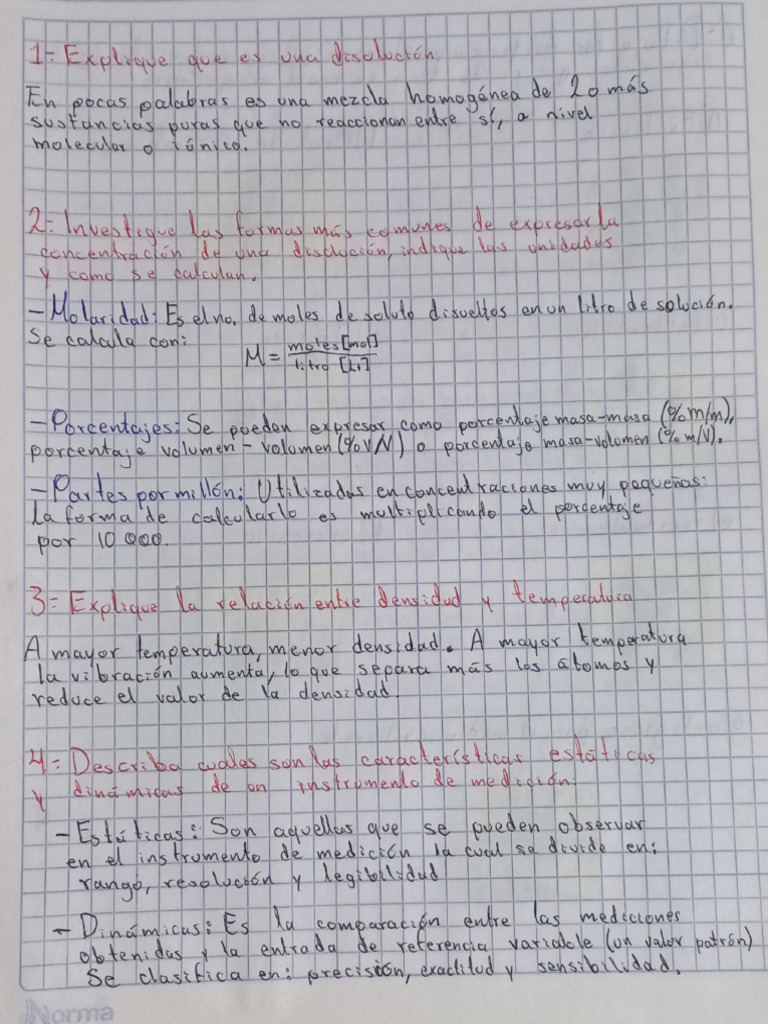 1= Explique que es una disolución
En pocas palabras es una mezcla homogénea de 2 o más
sustancias puras que no reaccionan entre sí, a nivel
molecular o iónico.
2= Investigue las formas más comunes de expresar la
concentración de una disolución, indique las unidades
y como se calculan.
- Molaridad: Es el no. de moles de soluto disueltos en un litro de solución.
Se calcula con:
M = moles [mol]
litro [Lt]
- Porcentajes: Se pueden expresar como porcentaje masa-masa (% m/m),
porcentaje volumen - volumen (% V/V) o porcentaje masa-volumen (% m/V).
- Partes por millón: Utilizadas en concentraciones muy pequeñas:
la forma de calcularlo es multiplicando el porcentaje
por 10 000.
3= Explique la relación entre densidad y temperatura
A mayor temperatura, menor densidad. A mayor temperatura
la vibración aumenta, lo que separa más los átomos y
reduce el valor de la densidad.
4= Describa cuales son las características estáticas
y dinámicas de un instrumento de medición:
- Estáticas: Son aquellas que se pueden observar
en el instrumento de medición la cual se divide en:
rango, resolución y legibilidad
- Dinámicas: Es la comparación entre las mediciones
obtenidas y la entrada de referencia variable (un valor patrón)
Se clasifica en: precisión, exactitud y sensibilidad.
Norma